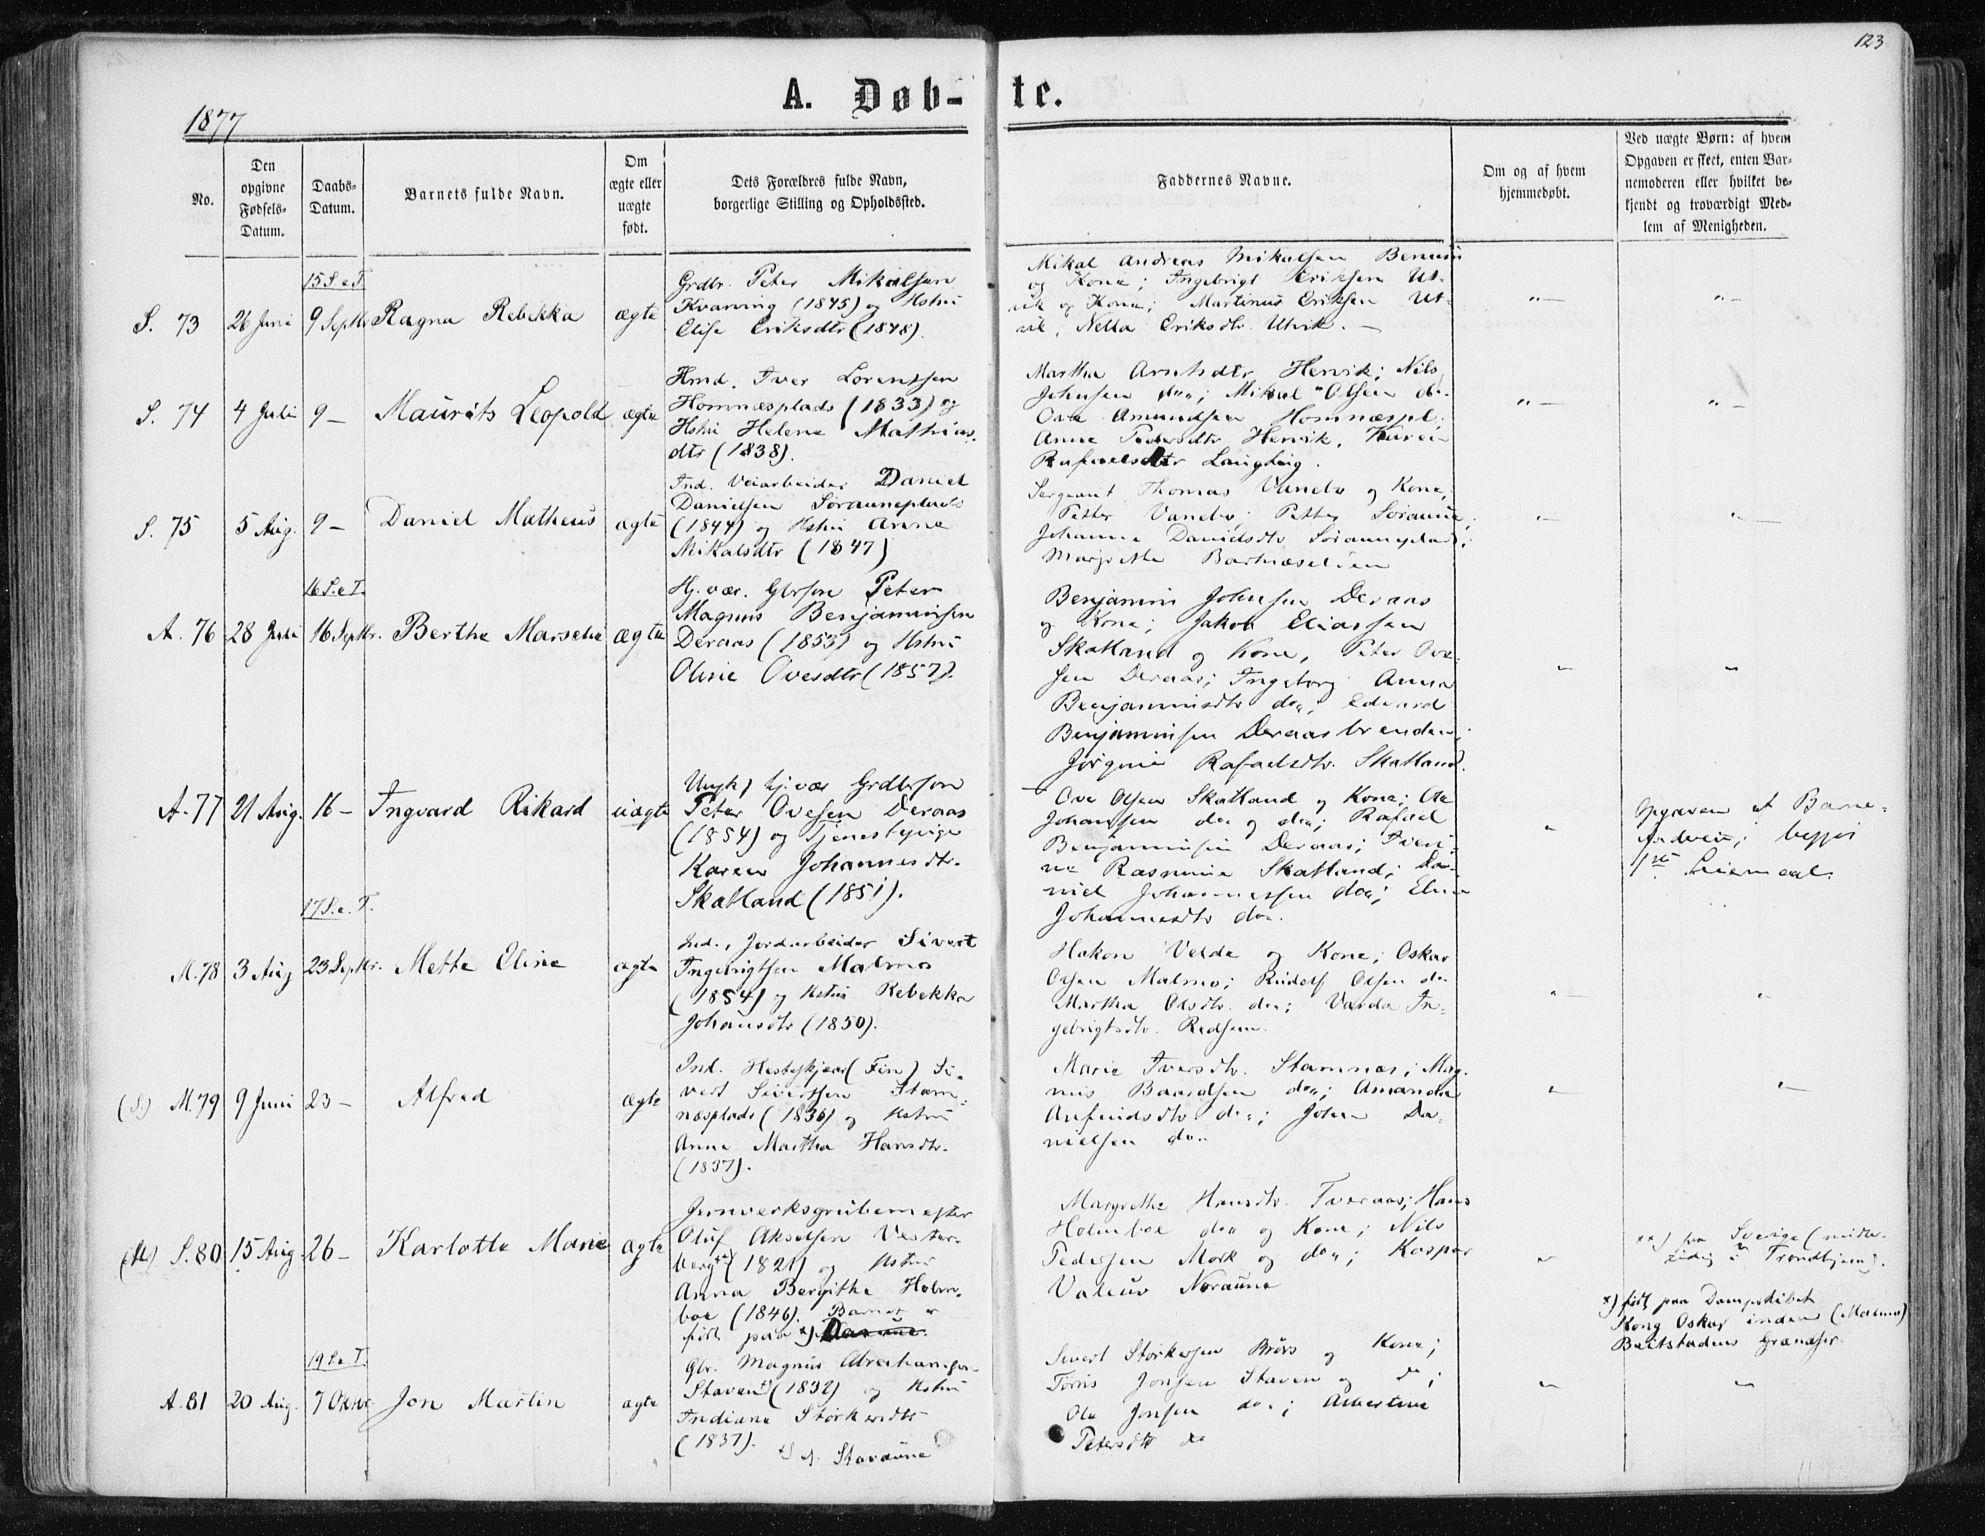 123
A. Døb-te.
1877
No.
Den opgivne Fødsels-Datum.
Daabs-Datum.
Barnets fulde Navn.
Om ægte eller uægte født.
Dets Forældres fulde Navn, borgerlige Stilling og Opholdssted.
Faddernes Navne.
Om og af hvem hjemmedøbt.
Ved uægte Børn: af hvem
Opgaven er skeet, enten Bar-
nemoderen eller hvilket be-
kjendt og troværdigt Med-
lem af Menigheden.
15 S. e. T.
S. 73 26 Juni 9 Septbr Ragna Rebekka ægte
Grdbr. Peter Mikalsen
Kvarving (1845) og Hstru
Elise Eriksdtr (1848).
Mikal Andreas Mikalsen
og Kone; Ingebrigt Eriksen Ut-
vik og Kone; Martinus Eriksen Ut-
vik, Nella Eriksdtr. Utvik. —
" —
" —
S. 74 4 Juli 9 — Maurits Leopold ægte
Hmd. Iver Lorentsen
Homnæsplads (1833) og
Hstru Helene Mathias-
dtr (1838).
Martha Arntsdtr Hervik; Nils
Johnsen do; Mikal Olsen do
Ove Amundsen Homnæspl.
Anne Pedersdtr Hervik, Karen
Rafaelsdtr
" —
" —
S. 75 5 Aug. 9 — Daniel Matheus ægte
Ind. Veiarbeider Daniel
Danielsen Sørauneplads
(1844) og Hstru Anna
Mikalsdtr (1847)
Sergeant Thomas Vanebo og Kone,
Petter Vanebo; Petter Søraune;
Johanna Danielsdtr Sørauneplads;
Margrethe
" —
" —
16 S. e. T.
A. 76 28 Juli 16 Septbr. Berthe Marselie ægte
Hj.vær. Gbrsøn Peter
Magnus Benjaminsen
Deraas (1855) og Hstru
Oline Ovesdtr (1857).
Benjamin Johnsen Deraas
og Kone; Jakob Eliassen
Skatland og Kone, Peter Ove-
sen Deraas; Ingeborg Anna
Benjaminsdtr do; Edvard
Benjaminsen Deraasbrenden;
Jørgine Rafaelsdtr. Skatland.
"
"
A. 77 21 Aug. 16 — Ingvard Rikard uægte
Ungk, hj.vær Grdbrsøn
Peter Ovesen Deraas
(1854) og Tjenestepige
Karen Johannesdtr.
Skatland (1851).
Ove Olsen Skatland og Kone; Ole
Johansen do og do; Rafael
Benjaminsen Deraas;
Rasmine Skatland; Da-
niel Johannessen do;
Johannesdtr do.
"
Opgaven af Barne-
faderen; begges
1ste Leiermaal.
17 S. e. T.
M. 78 3 Aug 23 Septbr. Mette Eline ægte
Ind., Jordarbeider Sivert
Ingebrigtsen Malmo
(1854) og Hstru Rebekka
Johansdtr (1850).
Hakon Velde og Kone; Oskar
Olsen Malmo; Rudolf Olsen do
Martha Olsdtr. do; Varda In-
gebrigtsdtr.
" —
"
(S.) M. 79 9 Juni 23 — Alfred ægte
Ind. Hesteskjær (Fin) Si-
vert Sivertsen Stam-
næsplads (1836) og Hstru
Anna Martha Hansdtr.
(1837).
Marie Iversdtr. Stamnæs; Mag-
nus Baardsen do; Amanda
Arfinidsdtr do; Johan Da-
nielsen do
"
" —
(M) S. 80 15 Aug. 26 — Karlotte Marie ægte
Jernverksgrubemester
Oluf Akselsen Vester-
berg (1821) og Hstru
Anna Bergithe Holm-
boe (1846). Barnet er
født paa *)
Margrethe Hansdtr. Tveraas; Hans
Holmboe do og Kone; Nils
Pedersen Mork og do; Kaspar
Valeus Noraune
"
**) fra Sverige (midler-
tidig i Trondhjem).
*) født paa Dampskibet
Kong Oskar inden (Malmo)
Beitstadens Grændser.
19 S. e. T.
A. 81 20 Aug. 7 Oktbr. Jon Martin ægte
Gbr. Magnus Abrahamsen
Staven (1832) og Hstru
Indiana Størkersdtr
(1837).
Stavaune
Sivert Størkersen Brørs og Kone;
Tørris Jonsen Staven og do;
Ole Jonsen do; Albertine
Petersdtr do
"
"